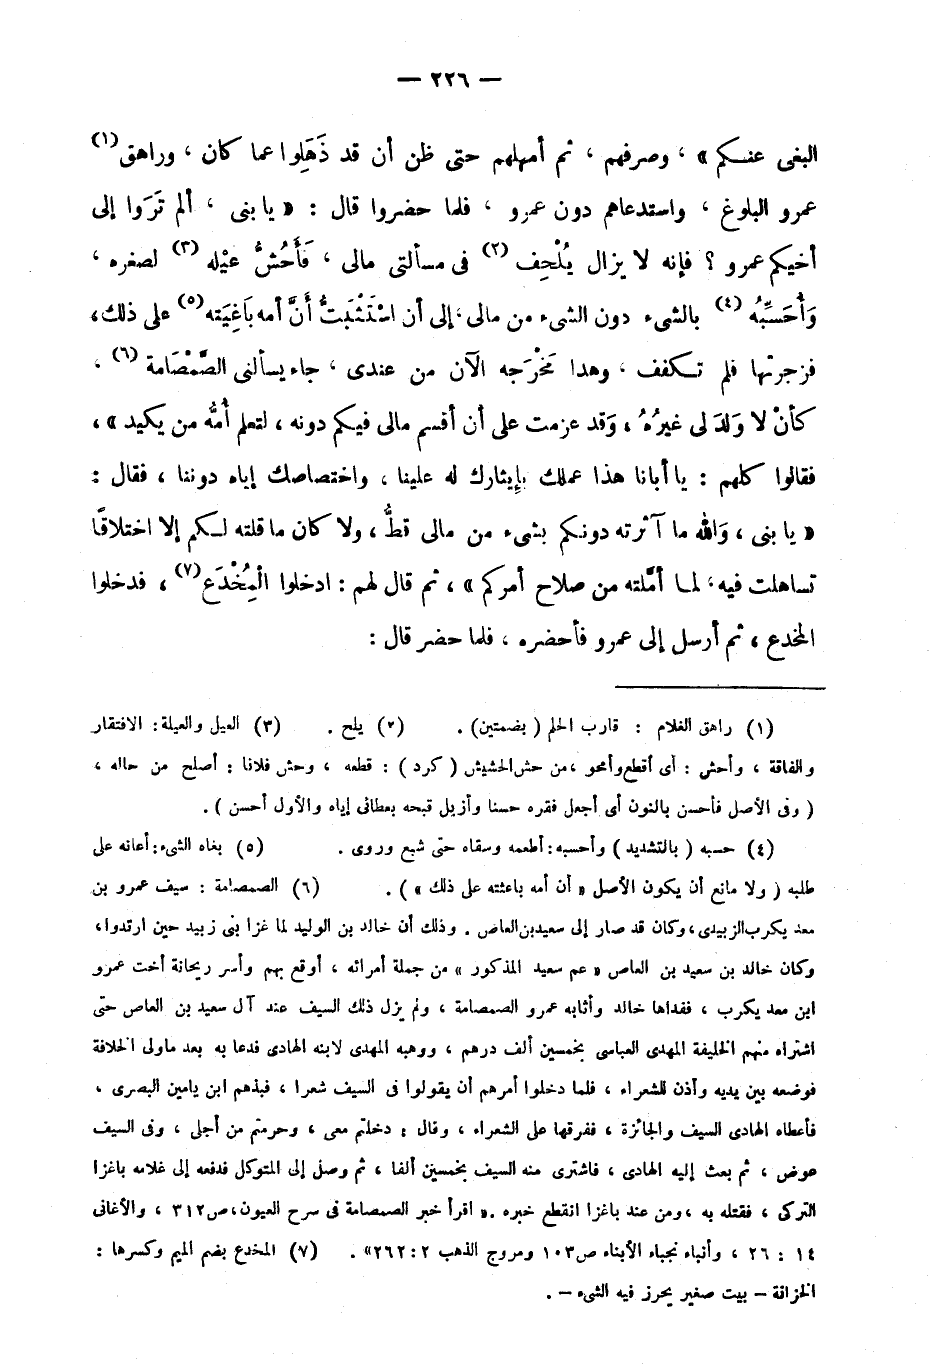 — ٢٢٦ —
البغى عنكم» ، وصرفهم ، ثم أمهلهم حتى ظن أن قد ذَهَلِوا عما كان ، وراهق(١)
عمرو البلوغ ، واستدعاهم دون عمرو ، فلما حضروا قال : « يا بنى ، ألم تَرَوا إلى
أخيكم عمرو ؟ فإنه لا يزال يُلْحِف (٢) فى مسألتى مالى ، فَأَحُشُّ عيْله (٣) لصغره ،
وَأُحَسِّبُه (٤) بالشىء دون الشىء من مالى ، إلى أن اسْتَثْبَتُّ أَنَّ أمه بَاغِيَته (٥) على ذلك ،
فزجرتها فلم تكفف ، وهذا مَخْرَجه الآن من عندى ، جاء يسألنى الصَّمْصَامة (٦) ،
كأنْ لا وَلَدَ لى غيرُهُ ، وَقد عزمت على أن أقسم مالى فيكم دونه ، لتعلم أمُّه من يكيد » ،
فقالوا كلهم : يا أبانا هذا عملك بإِيثارك له علينا ، واختصاصك إياه دوننا ، فقال :
« يا بنى ، وَالله ما آثرته دونكم بشىء من مالى قطُّ ، ولا كان ما قلته لكم إلا اختلاقًا
تساهلت فيه ، لما أمَّلته من صلاح أمركم » ، ثم قال لهم : ادخلوا الْمِخْدَع (٧) ، فدخلوا
المخدع ، ثم أرسل إلى عمرو فأحضره ، فلما حضر قال :
(١) راهق الغلام : قارب الحلم ( بضمتين ) . (٢) يلح . (٣) العيل والعيلة : الافتقار
والفاقة ، وأحش : أى أقطع وأمحو ، من حش الحشيش ( كرد ) : قطعه ، وحش فلانا : أصلح من حاله ،
( وفى الأصل فأحسن بالنون أى أجعل فقره حسنا وأزيل قبحه بعطائى إياه والأول أحسن ) .
(٤) حسبه ( بالتشديد ) وأحسبه : أطعمه وسقاه حتى شبع وروى . (٥) بغاه الشىء : أعانه على
طلبه ( ولا مانع أن يكون الأصل « أن أمه باعثته على ذلك » ) . (٦) الصمصامة : سيف عمرو بن
معد يكرب الزبيدى ، وكان قد صار إلى سعيد بن العاص . وذلك أن خالد بن الوليد لما غزا بنى زبيد حين ارتدوا ،
وكان خالد بن سعيد بن العاص « عم سعيد المذكور » من جملة أمرائه ، أوقع بهم وأسر ريحانة أخت عمرو
ابن معد يكرب ، ففداها خالد وأثابه عمرو الصمصامة ، ولم يزل ذلك السيف عند آل سعيد بن العاص حتى
اشتراه منهم الخليفة المهدى العباسى بخمسين ألف درهم ، ووهبه المهدى لابنه الهادى فدعا به بعد ماولى الخلافة
فوضعه بين يديه وأذن للشعراء ، فلما دخلوا أمرهم أن يقولوا فى السيف شعرا ، فبذهم ابن يامين البصرى ،
فأعطاه الهادى السيف والجائزة ، ففرقها على الشعراء ، وقال : دخلتم معى ، وحرمتم من أجلى ، وفى السيف
عوض ، ثم بعث إليه الهادى ، فاشترى منه السيف بخمسين ألفا ، ثم وصل إلى المتوكل فدفعه إلى غلامه باغزا
التركى ، فقتله به ، ومن عند باغزا انقطع خبره . « اقرأ خبر الصمصامة فى سرح العيون ، ص ٣١٢ ، والأغانى
١٤ : ٢٦ ، وأنباء نجباء الأبناء ص ١٠٣ ومروج الذهب ٢ : ٢٦٢ » . (٧) المخدع بضم الميم وكسرها :
الخزاقة — بيت صغير يحرز فيه الشىء — .